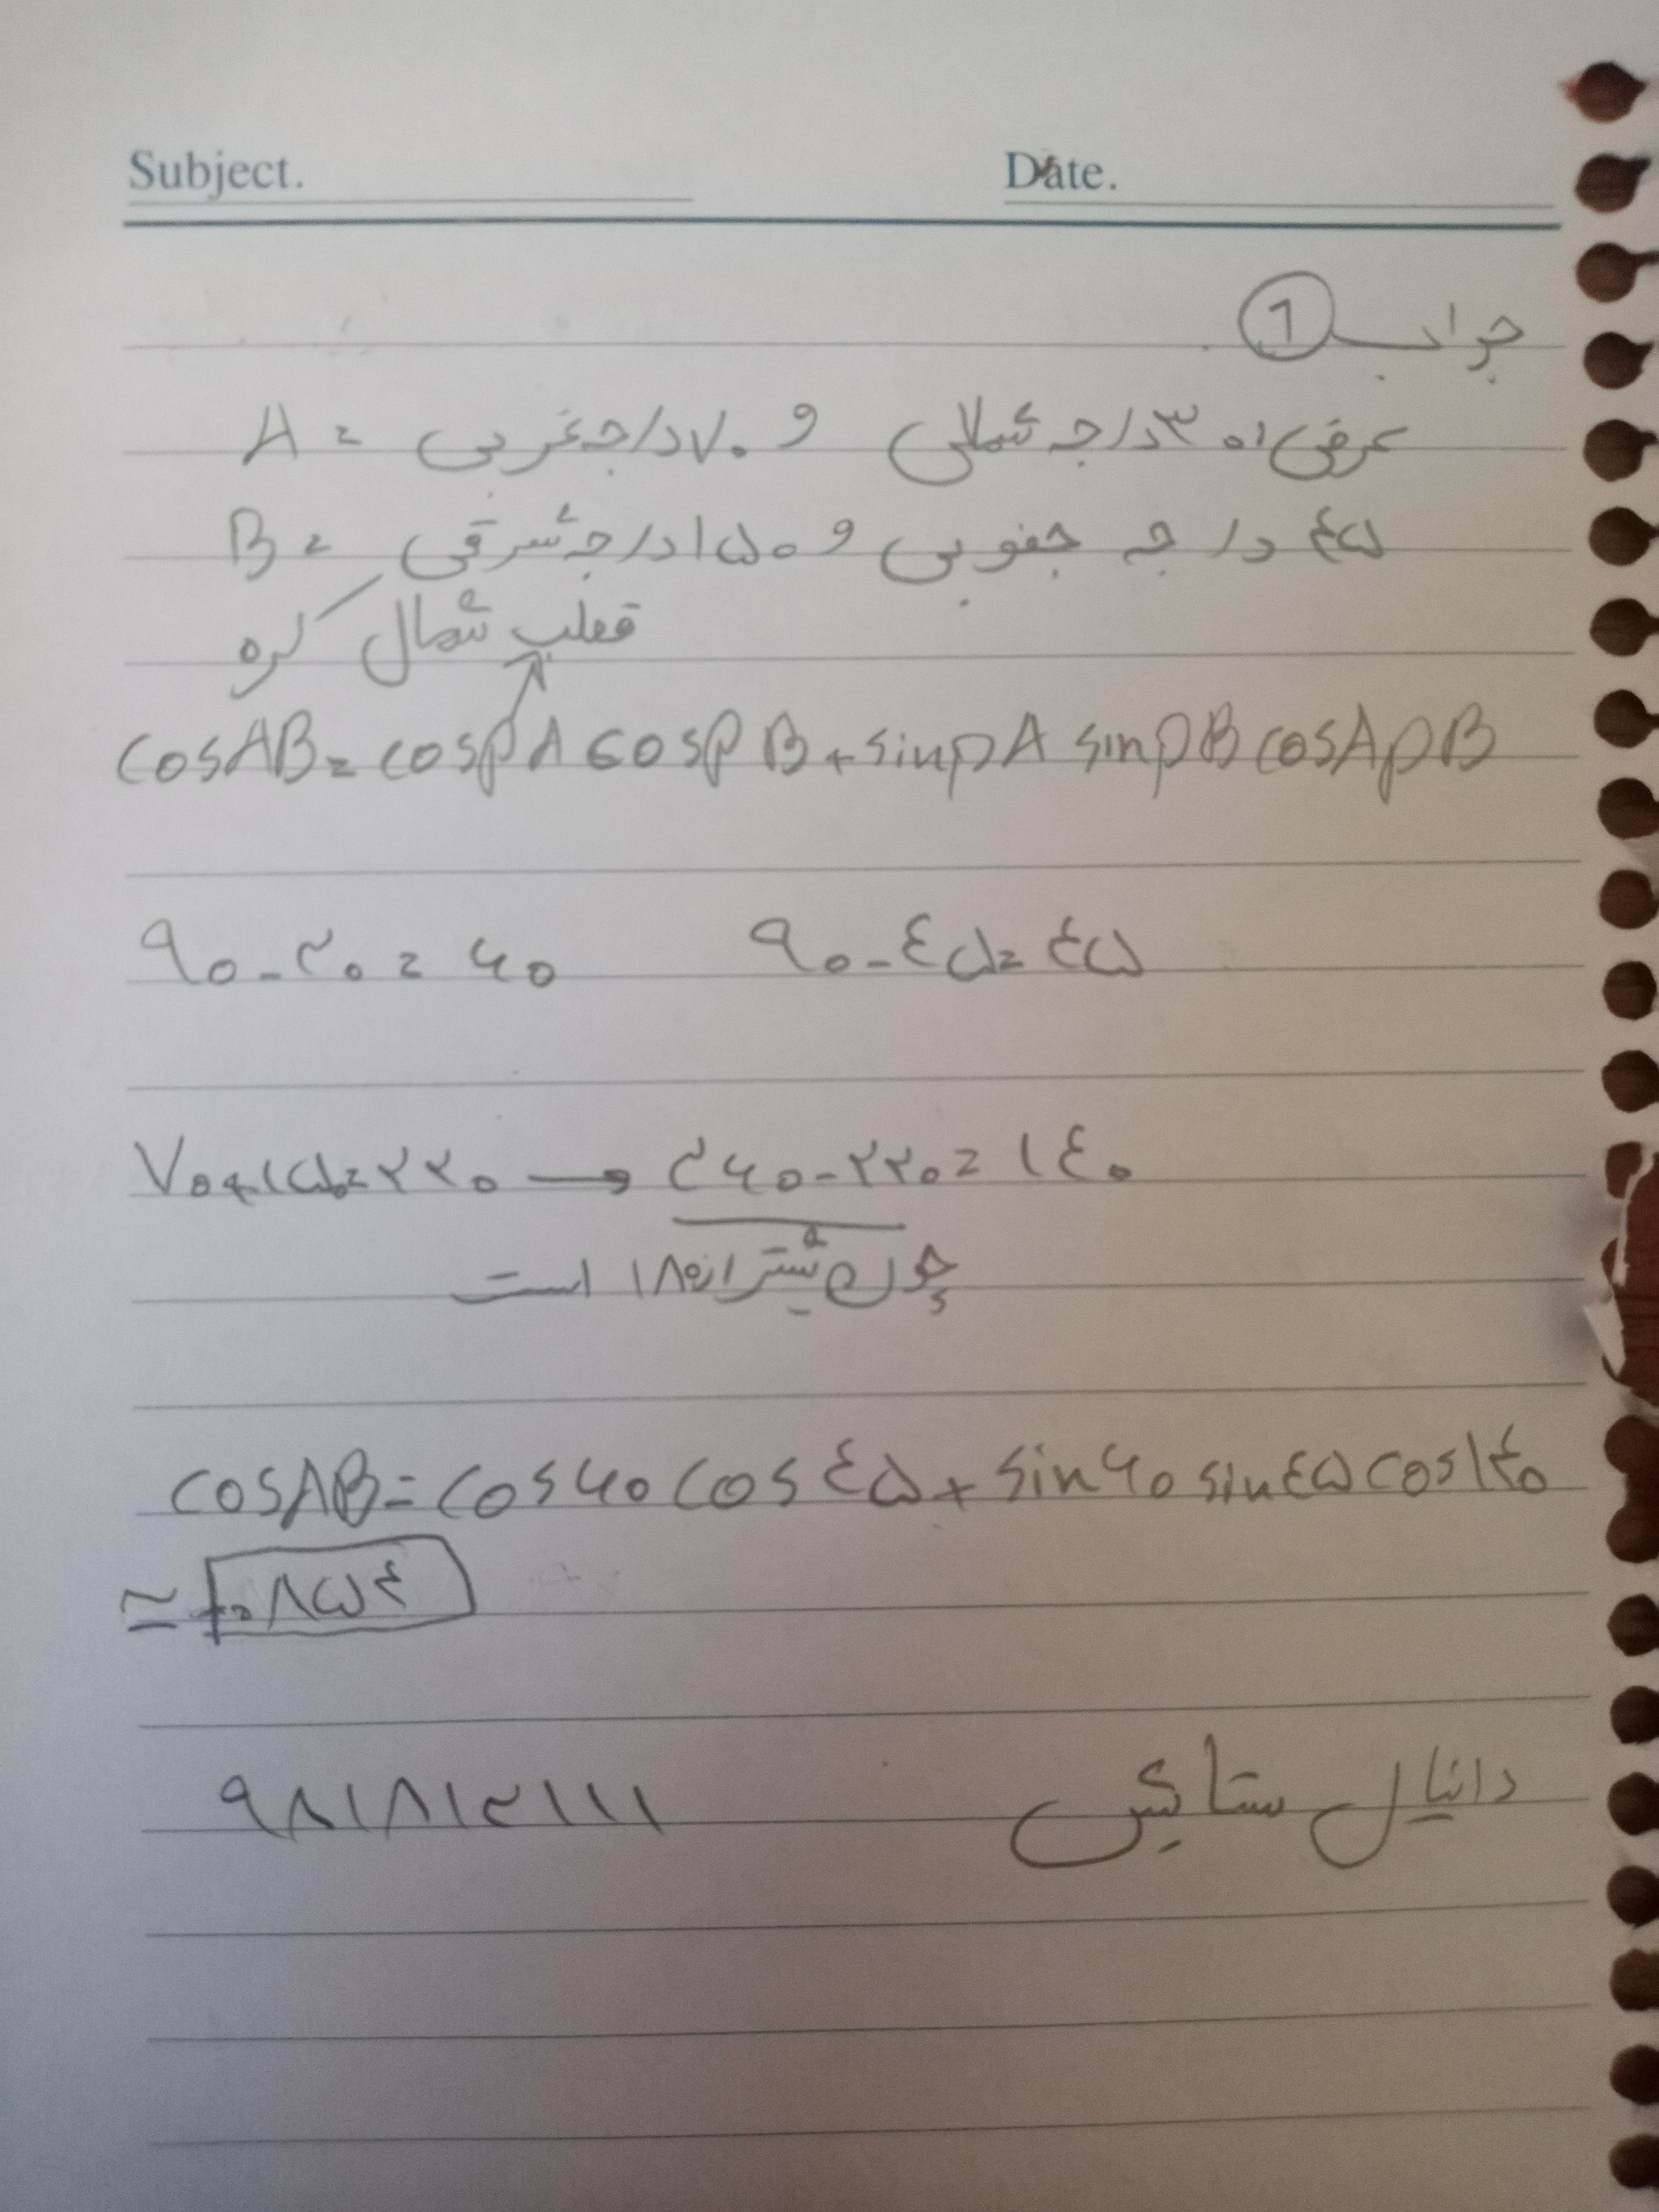 Subject. Date.
جواب ①
عرض ۳۰ درجه شمالی و ۷۰ درجه غربی = A
۴۵ درجه جنوبی و ۱۵۰ درجه شرقی = B
قطب شمال کره
cosAB = cosPA cosPB + sinPA sinPB cosAPB
۹۰-۳۰ = ۶۰ ۹۰-۴۵ = ۴۵
۷۰+۱۵۰=۲۲۰ → ۳۶۰-۲۲۰=۱۴۰
چون بیشتر از ۱۸۰ است
cosAB = cos۶۰ cos۴۵ + sin۶۰ sin۴۵ cos۱۴۰
≃ ۸۵۴
دانیال ستایش ۹۸۱۸۱۳۱۱۱